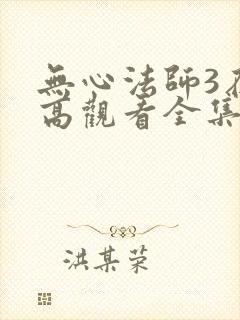 無心法師3
高觀看全集
洪某荣